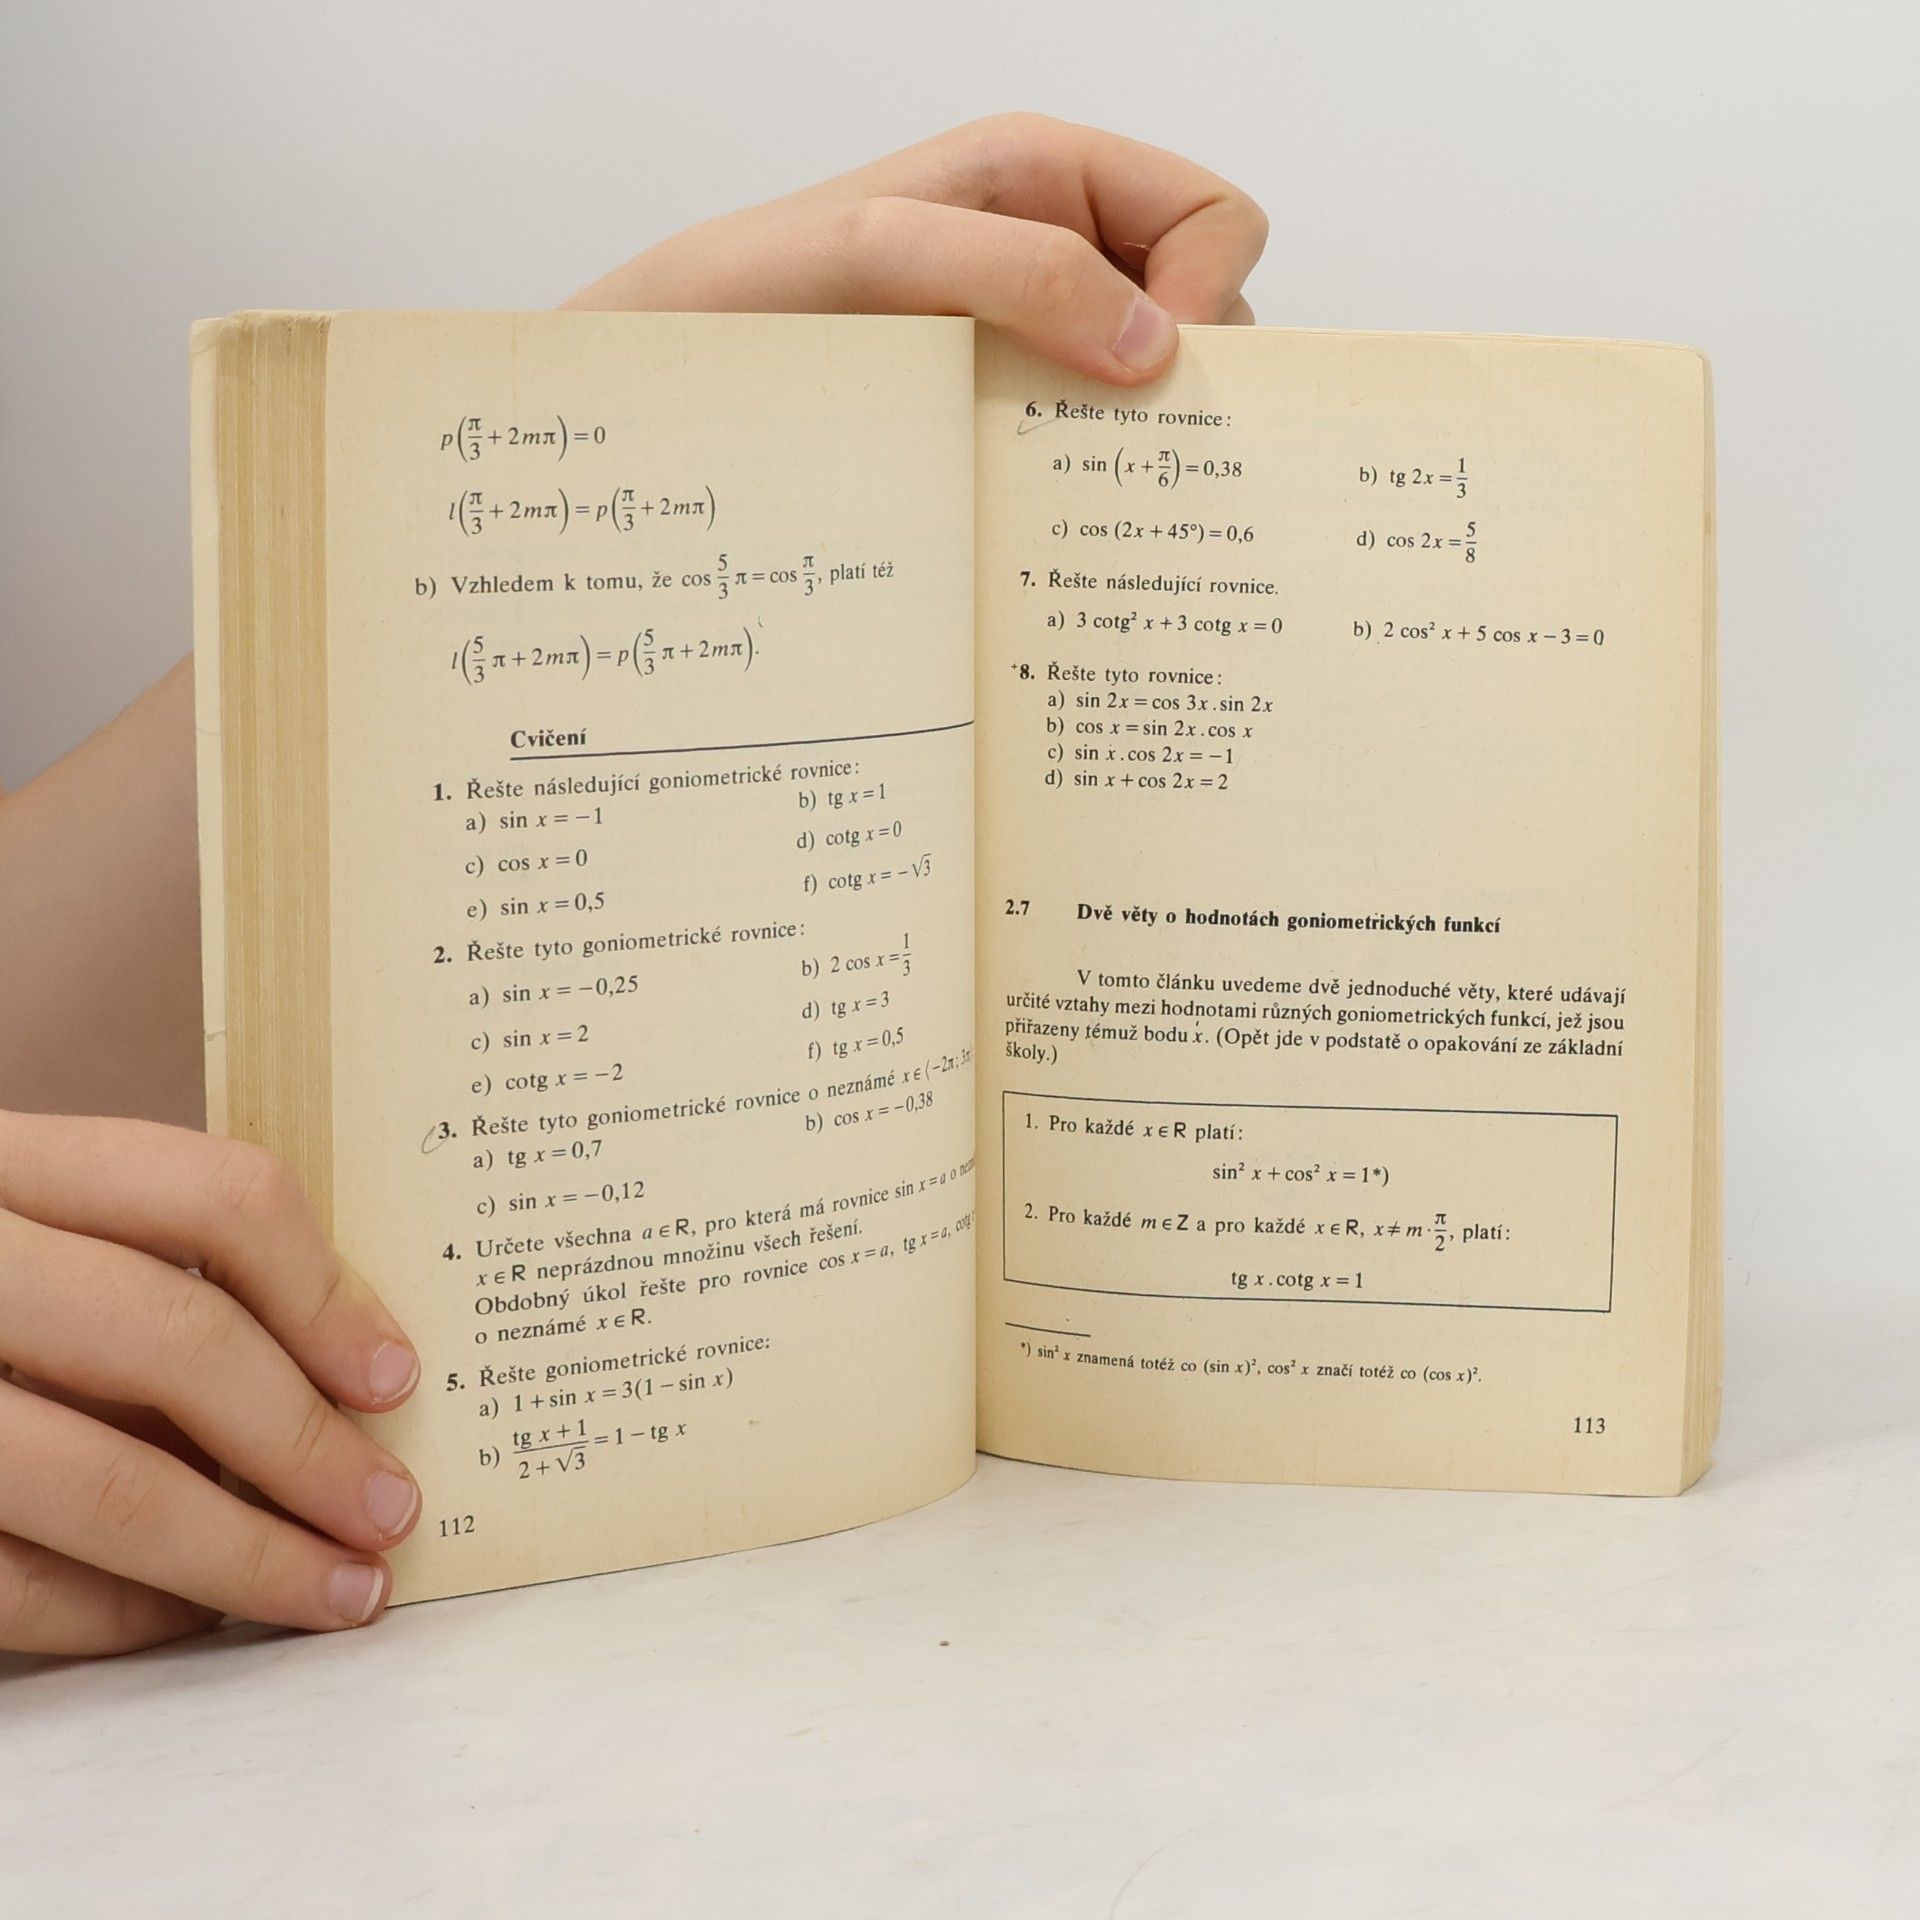 p(π/3 + 2mπ) = 0
l(π/3 + 2mπ) = p(π/3 + 2mπ)
b) Vzhledem k tomu, že cos 5/3 π = cos π/3, platí též
l(5/3 π + 2mπ) = p(5/3 π + 2mπ).
Cvičení
1. Řešte následující goniometrické rovnice:
a) sin x = −1 b) tg x = 1
c) cos x = 0 d) cotg x = 0
e) sin x = 0,5 f) cotg x = −√3
2. Řešte tyto goniometrické rovnice:
a) sin x = −0,25 b) 2 cos x = 1/3
c) sin x = 2 d) tg x = 3
e) cotg x = −2 f) tg x = 0,5
3. Řešte tyto goniometrické rovnice o neznámé x ∈ ⟨−2π; 3π
a) tg x = 0,7 b) cos x = −0,38
c) sin x = −0,12
4. Určete všechna a ∈ R, pro která má rovnice sin x = a o
x ∈ R neprázdnou množinu všech řešení.
Obdobný úkol řešte pro rovnice cos x = a, tg x = a, cotg
o neznámé x ∈ R.
5. Řešte goniometrické rovnice:
a) 1 + sin x = 3(1 − sin x)
b) (tg x + 1)/(2 + √3) = 1 − tg x
112
6. Řešte tyto rovnice:
a) sin (x + π/6) = 0,38 b) tg 2x = 1/3
c) cos (2x + 45°) = 0,6 d) cos 2x = 5/8
7. Řešte následující rovnice.
a) 3 cotg² x + 3 cotg x = 0 b) 2 cos² x + 5 cos x − 3 = 0
+8. Řešte tyto rovnice:
a) sin 2x = cos 3x . sin 2x
b) cos x = sin 2x . cos x
c) sin x . cos 2x = −1
d) sin x + cos 2x = 2
2.7 Dvě věty o hodnotách goniometrických funkcí
V tomto článku uvedeme dvě jednoduché věty, které udávají
určité vztahy mezi hodnotami různých goniometrických funkcí, jež jsou
přiřazeny témuž bodu x. (Opět jde v podstatě o opakování ze základní
školy.)
1. Pro každé x ∈ R platí:
sin² x + cos² x = 1*)
2. Pro každé m ∈ Z a pro každé x ∈ R, x ≠ m · π/2, platí:
tg x . cotg x = 1
*) sin² x znamená totéž co (sin x)², cos² x značí totéž co (cos x)².
113